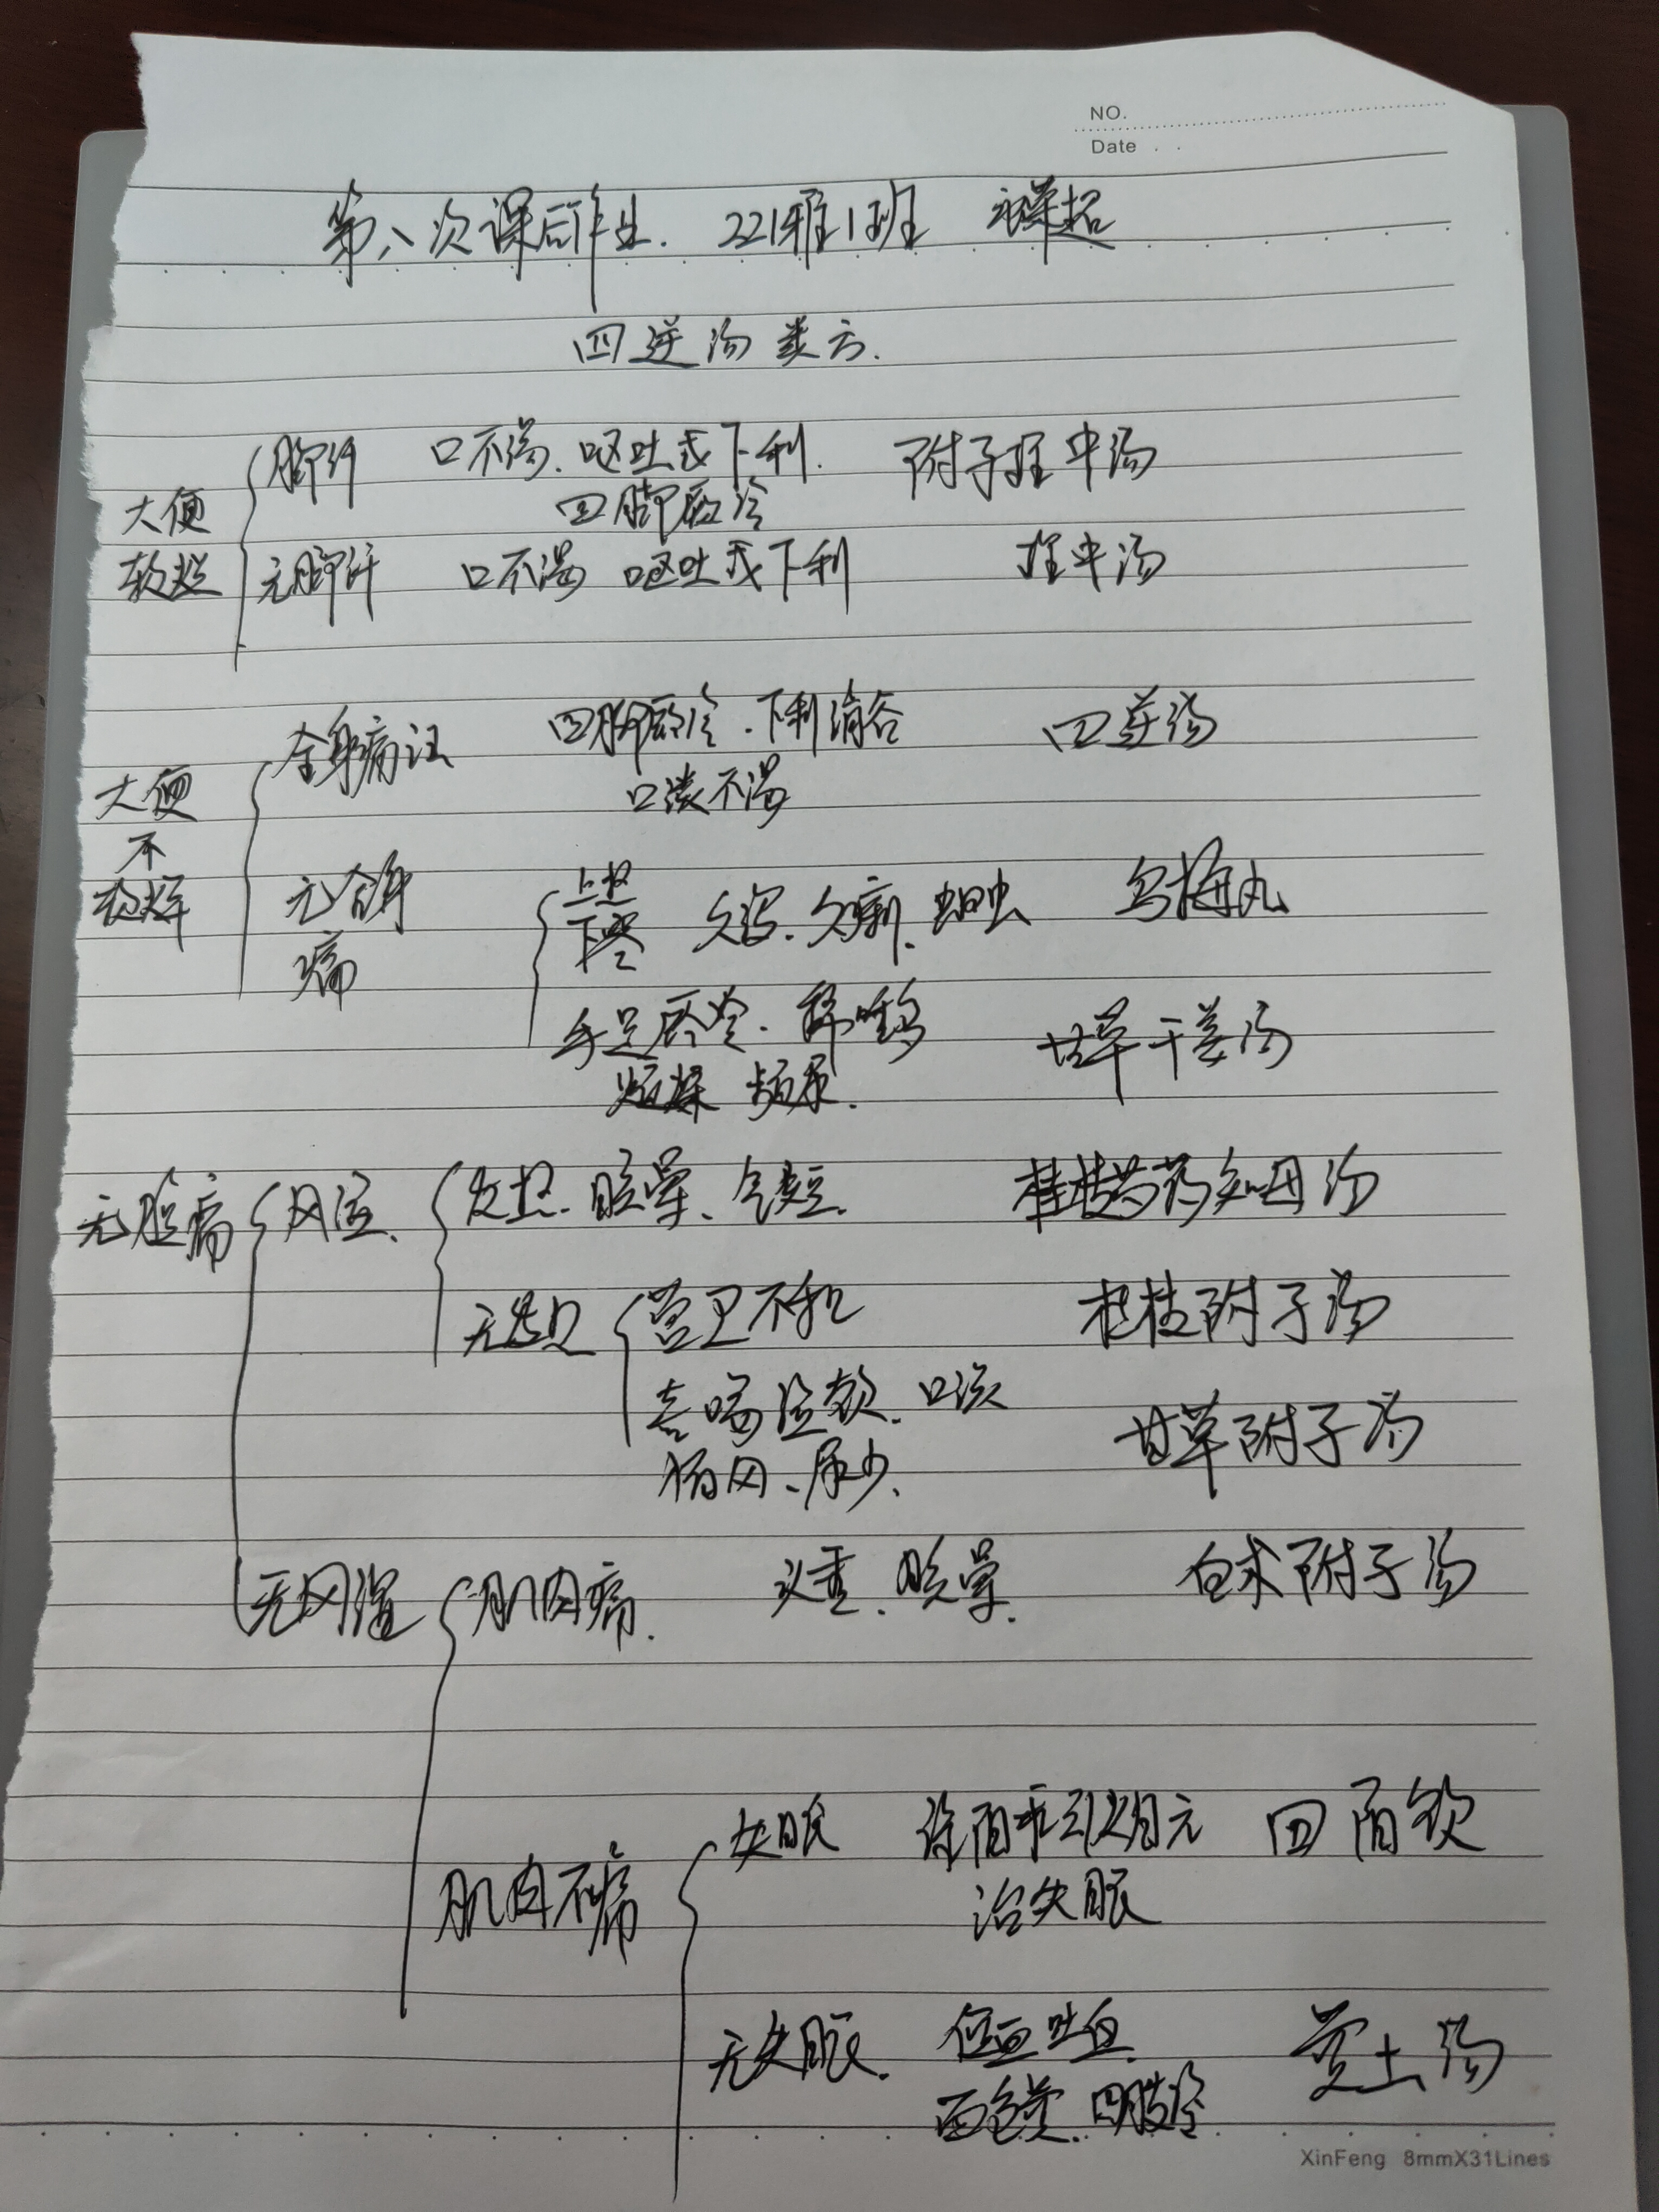 NO.
Date
第八次课后作业. 221雅1班
四逆汤类方.
大便
软烂
脚纤 口不渴、呕吐或下利. 附子理中汤
四脚厥冷
无脚纤 口不渴 呕吐或下利 理中汤
大便
不
软烂
全身痛证 四脚厥冷.下利清谷 四逆汤
口淡不渴
无全身
痛
上热
下寒 久泻、久痢、蛔虫 乌梅丸
手足厥冷. 甘草干姜汤
烦燥 频尿.
无腹痛 风湿、 发热、眩晕、气短. 桂枝芍药知母汤
无发热 营卫不和 桂枝附子汤
喜喝温饮、口淡 甘草附子汤
恶风、尿少、
无风湿 肌肉痛. 头重、眩晕. 白术附子汤
肌肉不痛
失眠 徐阳来引火归元 四阳饮
治失眠
无失眠. 便血吐血、 黄土汤
面色黄、四肢冷
XinFeng 8mmX31Lines